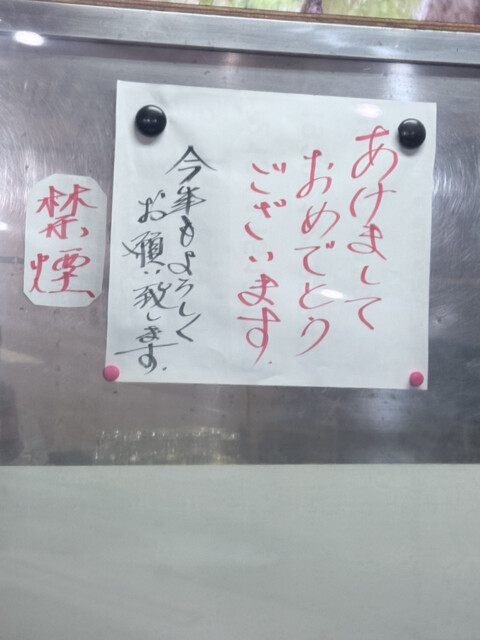 あけまして
おめでとう
ございます
今年もよろしく
お願い致します.
禁煙